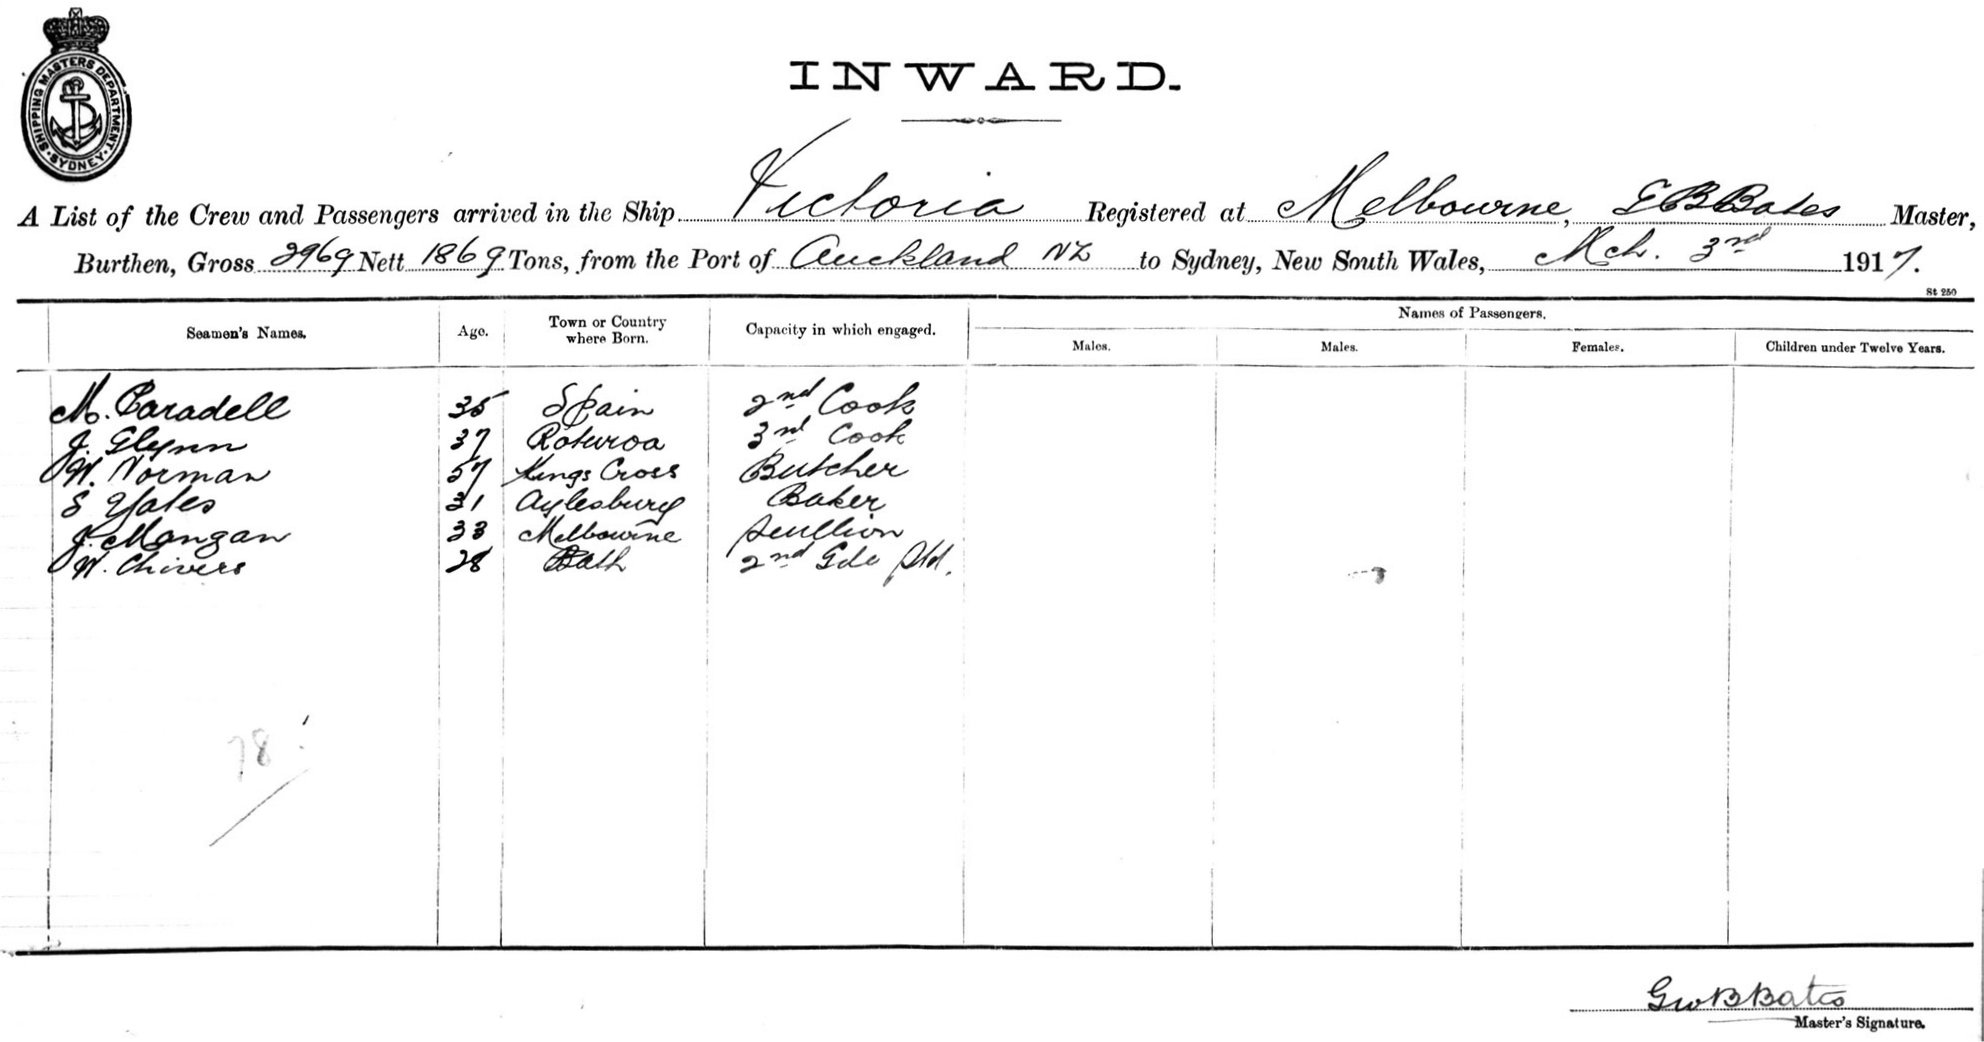 SHIPPING MASTERS DEPARTMENT
SYDNEY
INWARD.
A List of the Crew and Passengers arrived in the Ship Victoria Registered at Melbourne, G B Bates Master,
Burthen, Gross 2969 Nett 1869 Tons, from the Port of Auckland NZ to Sydney, New South Wales, Mch. 3rd 1917.
St 250
Seamen's Names. Age. Town or Country where Born. Capacity in which engaged. Names of Passengers.
Males. Males. Females. Children under Twelve Years.
M. Paradell 35 Spain 2nd Cook
J. Glynn 37 Roturoa 3rd Cook
W. Norman 57 Kings Cross Butcher
S Yates 31 Aylesbury Baker
J. Mangan 33 Melbourne Scullion
W. Chivers 28 Bath 2nd Gde Std.
78
Geo B Bates
Master's Signature.